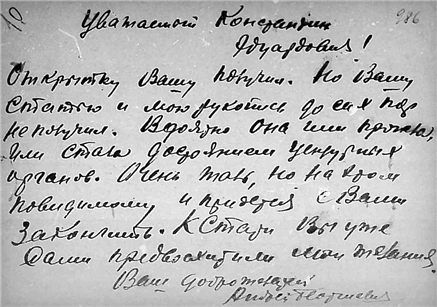 10 986
Уважаемый Константин
Эдуардович!
Открытку Вашу получил. Но Вашу
статью и мою рукопись до сих пор
не получил. Вероятно она или
или стала достоянием цензурных
органов. Очень жаль, но на этом
повидимому и придется с Вами
закончить. Кстати Вы уже
сами предвосхитили мои желания.
Ваш доброжелатель